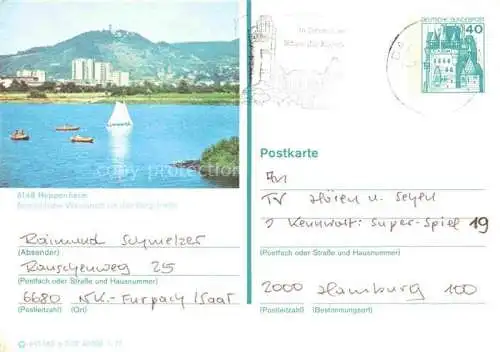 DEUTSCHE BUNDESPOST
40
6148 Heppenheim
Postkarte
An
TV Hören u. Sehen
Kennwort: Super-Spiel 19
(Postfach oder Straße und Hausnummer)
2000 Hamburg 100
(Postleitzahl) (Bestimmungsort)
Raimund Schmelzer
(Absender)
Rauschenweg 25
(Postfach oder Straße und Hausnummer)
6680 NK.-Furpach/Saar
(Postleitzahl) (Ort)